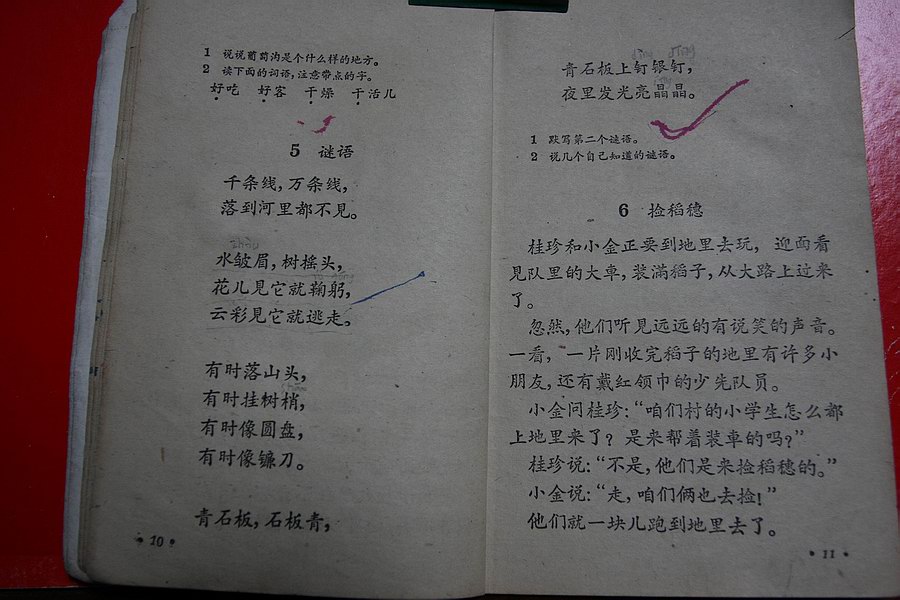 1 说说葡萄沟是个什么样的地方。
2 读下面的词语,注意带点的字。
好吃 好客 干燥 干活儿
5 谜语
千条线,万条线,
落到河里都不見。
zhòu
水皱眉,树摇头,
花儿見它就鞠躬,
云彩見它就逃走。
有时落山头,
有时挂树梢,
有时像圆盘,
有时像镰刀。
青石板,石板青,
10
青石板上钉银钉,
夜里发光亮晶晶。
1 默写第二个谜语。
2 说几个自己知道的谜语。
6 捡稻穗
桂珍和小金正要到地里去玩, 迎面看
見队里的大車,装满稻子,从大路上过来
了。
忽然,他们听見远远的有说笑的声音。
一看, 一片刚收完稻子的地里有许多小
朋友,还有戴红领巾的少先队员。
小金问桂珍:“咱们村的小学生怎么都
上地里来了? 是来帮着装車的吗?”
桂珍说:“不是,他们是来捡稻穗的。”
小金说:“走,咱们俩也去捡!”
他们就一块儿跑到地里去了。
11